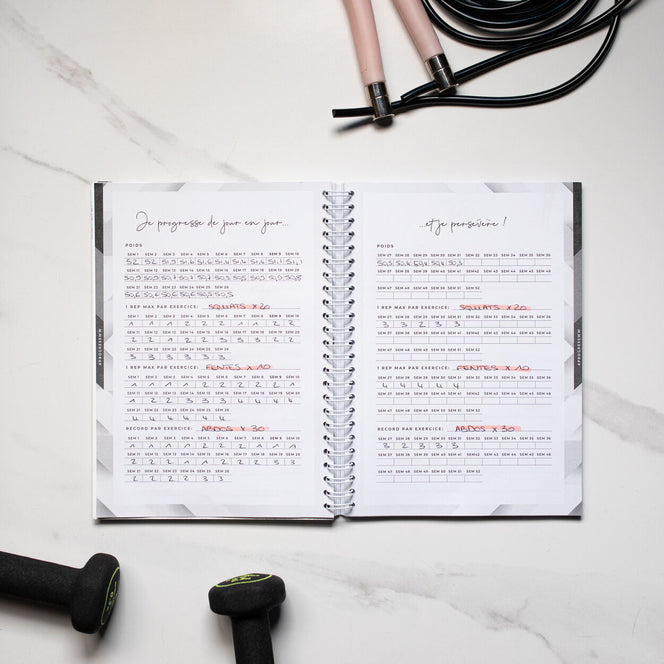 Je progresse de jour en jour...
POIDS
SEM 1 SEM 2 SEM 3 SEM 4 SEM 5 SEM 6 SEM 7 SEM 8 SEM 9 SEM 10
52 52 51,9 51,6 51,4 51,4 51,4 51,1 51,1
SEM 11 SEM 12 SEM 13 SEM 14 SEM 15 SEM 16 SEM 17 SEM 18 SEM 19 SEM 20
SEM 21 SEM 22 SEM 23 SEM 24 SEM 25 SEM 26
50,6 50,6 50,6 50,6 50,5 50,5
1 REP MAX PAR EXERCICE: SQUATS X 20
SEM 1 SEM 2 SEM 3 SEM 4 SEM 5 SEM 6 SEM 7 SEM 8 SEM 9 SEM 10
1 1 1 2 2 2 1 1 2 2
SEM 11 SEM 12 SEM 13 SEM 14 SEM 15 SEM 16 SEM 17 SEM 18 SEM 19 SEM 20
2 2 1 2 2 3 3 3 2 2
SEM 21 SEM 22 SEM 23 SEM 24 SEM 25 SEM 26
3 3 3 3 3 3
1 REP MAX PAR EXERCICE: FENTES X 10
SEM 1 SEM 2 SEM 3 SEM 4 SEM 5 SEM 6 SEM 7 SEM 8 SEM 9 SEM 10
1 1 1 1 2 2 2 2 2 1
SEM 11 SEM 12 SEM 13 SEM 14 SEM 15 SEM 16 SEM 17 SEM 18 SEM 19 SEM 20
1 2 2 3 3 3 4 4 4 4
SEM 21 SEM 22 SEM 23 SEM 24 SEM 25 SEM 26
4 4 4 4 4 4
RECORD PAR EXERCICE: ABDOS X 30
SEM 1 SEM 2 SEM 3 SEM 4 SEM 5 SEM 6 SEM 7 SEM 8 SEM 9 SEM 10
1 1 1 1 2 2 1 1 1 1
SEM 11 SEM 12 SEM 13 SEM 14 SEM 15 SEM 16 SEM 17 SEM 18 SEM 19 SEM 20
2 2 2 1 1 2 2 2 3 3
SEM 21 SEM 22 SEM 23 SEM 24 SEM 25 SEM 26
2 2 2 2 3 3
...et je persévère !
POIDS
SEM 27 SEM 28 SEM 29 SEM 30 SEM 31 SEM 32 SEM 33 SEM 34 SEM 35 SEM 36
50,5 50,4 50,4 50,4 50,3
SEM 37 SEM 38 SEM 39 SEM 40 SEM 41 SEM 42 SEM 43 SEM 44 SEM 45 SEM 46
SEM 47 SEM 48 SEM 49 SEM 50 SEM 51 SEM 52
1 REP MAX PAR EXERCICE: SQUATS X 20
SEM 27 SEM 28 SEM 29 SEM 30 SEM 31 SEM 32 SEM 33 SEM 34 SEM 35 SEM 36
3 3 2 3 3
SEM 37 SEM 38 SEM 39 SEM 40 SEM 41 SEM 42 SEM 43 SEM 44 SEM 45 SEM 46
SEM 47 SEM 48 SEM 49 SEM 50 SEM 51 SEM 52
1 REP MAX PAR EXERCICE: FENTES X 10
SEM 27 SEM 28 SEM 29 SEM 30 SEM 31 SEM 32 SEM 33 SEM 34 SEM 35 SEM 36
4 4 4 4 4
SEM 37 SEM 38 SEM 39 SEM 40 SEM 41 SEM 42 SEM 43 SEM 44 SEM 45 SEM 46
SEM 47 SEM 48 SEM 49 SEM 50 SEM 51 SEM 52
RECORD PAR EXERCICE: ABDOS X 30
SEM 27 SEM 28 SEM 29 SEM 30 SEM 31 SEM 32 SEM 33 SEM 34 SEM 35 SEM 36
3 2 3 3 3
SEM 37 SEM 38 SEM 39 SEM 40 SEM 41 SEM 42 SEM 43 SEM 44 SEM 45 SEM 46
SEM 47 SEM 48 SEM 49 SEM 50 SEM 51 SEM 52